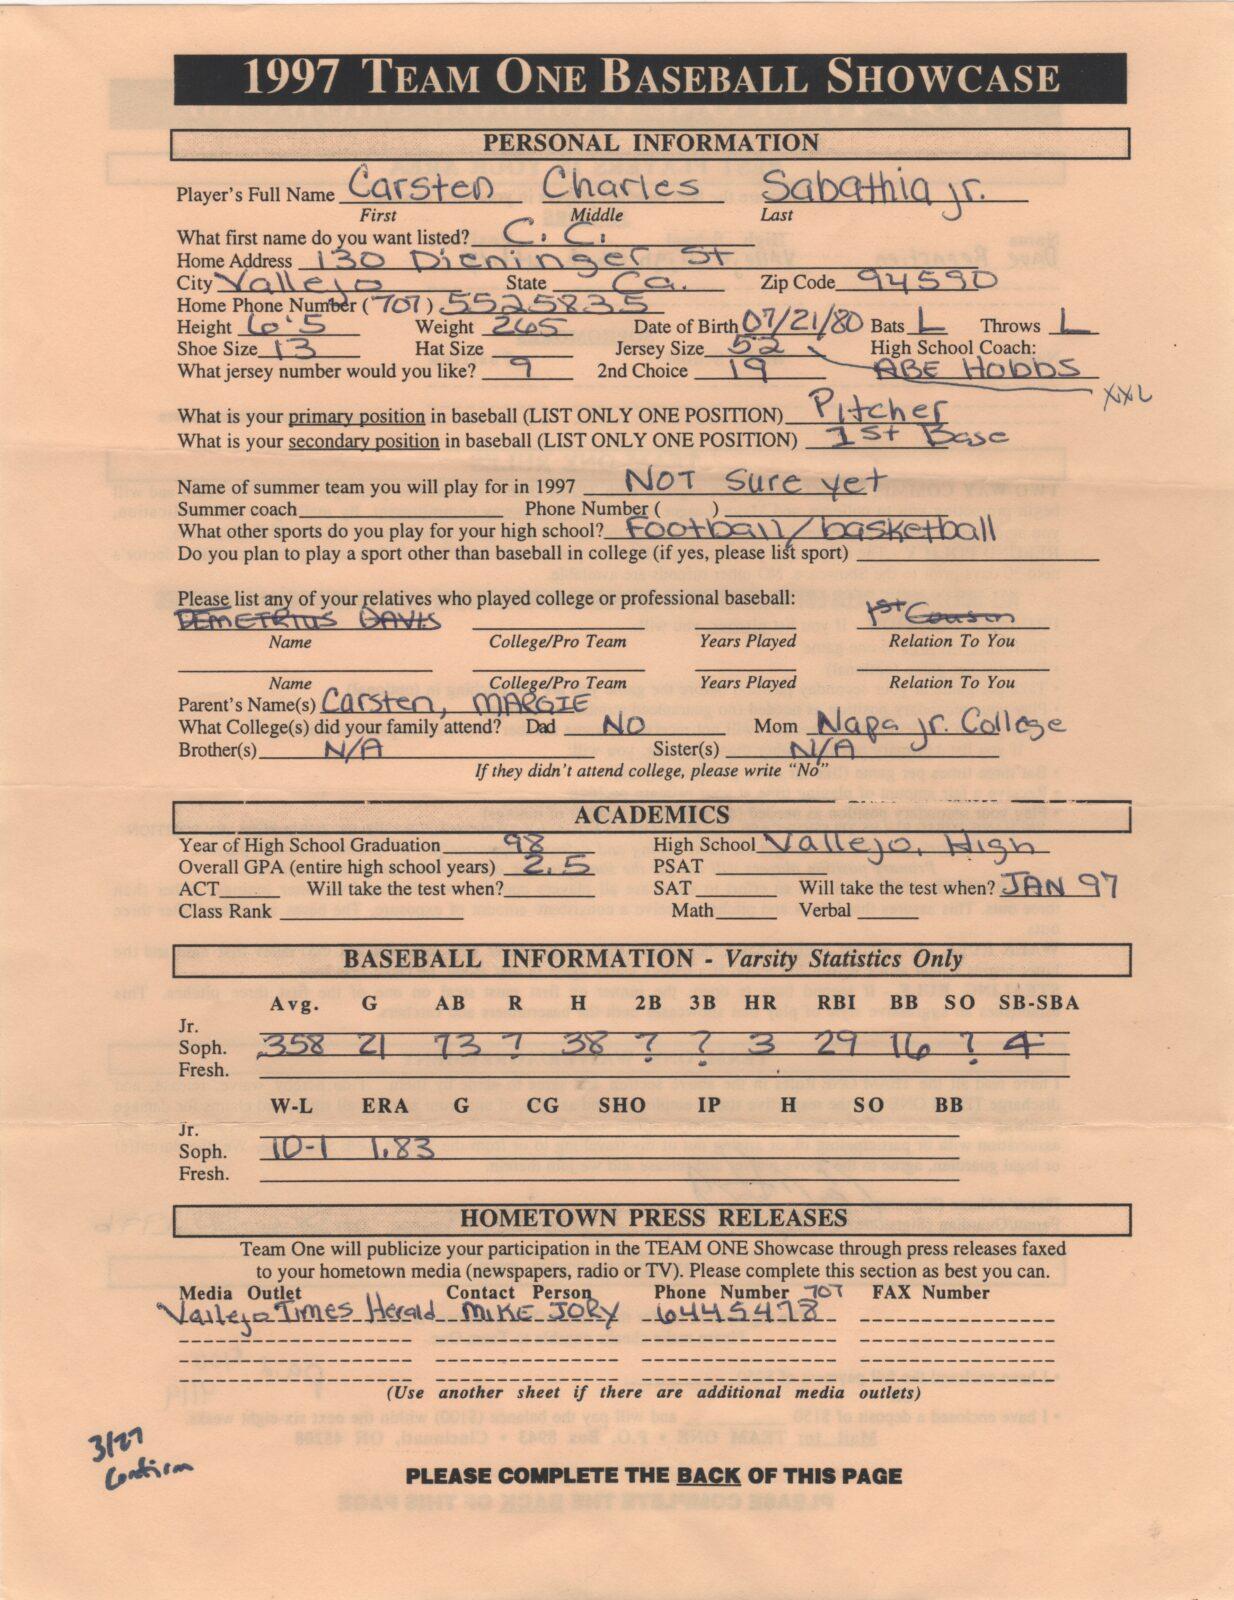 1997 TEAM ONE BASEBALL SHOWCASE
PERSONAL INFORMATION
Player's Full Name Carsten Charles Sabathia jr.
First Middle Last
What first name do you want listed? C. C.
Home Address 130 Dieninger St
City Vallejo State Ca. Zip Code 94590
Home Phone Number (707) 5525835
Height 6'5 Weight 265 Date of Birth 07/21/80 Bats L Throws L
Shoe Size 13 Hat Size Jersey Size 52 High School Coach:
What jersey number would you like? 9 2nd Choice 19 ABE HOBBS
XXL
What is your primary position in baseball (LIST ONLY ONE POSITION) Pitcher
What is your secondary position in baseball (LIST ONLY ONE POSITION) 1st Base
Name of summer team you will play for in 1997 NOT Sure yet
Summer coach Phone Number ( )
What other sports do you play for your high school? Football/basketball
Do you plan to play a sport other than baseball in college (if yes, please list sport)
Please list any of your relatives who played college or professional baseball:
DEMETRIUS DAVIS 1st Cousin
Name College/Pro Team Years Played Relation To You
Name College/Pro Team Years Played Relation To You
Parent's Name(s) Carsten, MARGIE
What College(s) did your family attend? Dad NO Mom Napa jr. College
Brother(s) N/A Sister(s) N/A
If they didn't attend college, please write "No"
ACADEMICS
Year of High School Graduation 98 High School Vallejo, High
Overall GPA (entire high school years) 2.5 PSAT
ACT Will take the test when? SAT Will take the test when? JAN 97
Class Rank Math Verbal
BASEBALL INFORMATION - Varsity Statistics Only
Avg. G AB R H 2B 3B HR RBI BB SO SB-SBA
Jr.
Soph. .358 21 73 ? 38 ? ? 3 29 16 ? 4
Fresh.
W-L ERA G CG SHO IP H SO BB
Jr.
Soph. 10-1 1.83
Fresh.
HOMETOWN PRESS RELEASES
Team One will publicize your participation in the TEAM ONE Showcase through press releases faxed
to your hometown media (newspapers, radio or TV). Please complete this section as best you can.
Media Outlet Contact Person Phone Number 707 FAX Number
Vallejo Times Herald MIKE JORY 6445478
(Use another sheet if there are additional media outlets)
3/27
Confirm
PLEASE COMPLETE THE BACK OF THIS PAGE